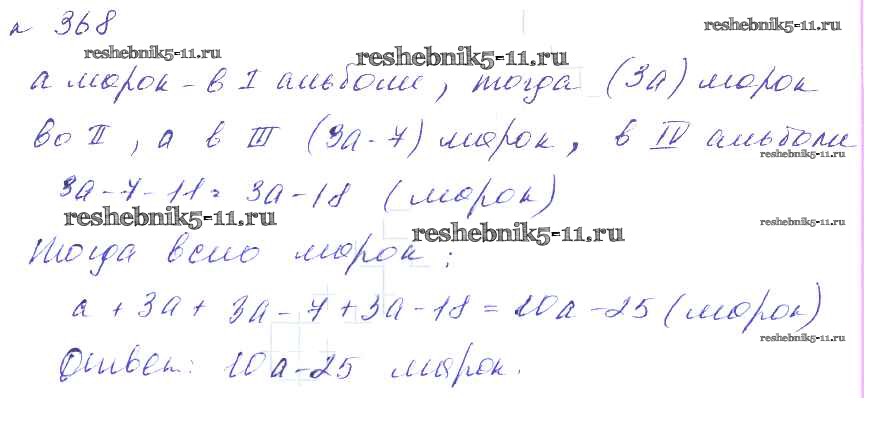 № 368
reshebnik5-11.ru
reshebnik5-11.ru
reshebnik5-11.ru
а марок - в I альбоме, тогда (3а) марок
во II, а в III (3а - 7) марок, в IV альбоме
reshebnik5-11.ru
3а - 7 - 11 = 3а - 18 (марок)
reshebnik5-11.ru
reshebnik5-11.ru
reshebnik5-11.ru
Тогда всего марок:
а + 3а + 3а - 7 + 3а - 18 = 10а - 25 (марок)
reshebnik5-11.ru
Ответ: 10а - 25 марок.